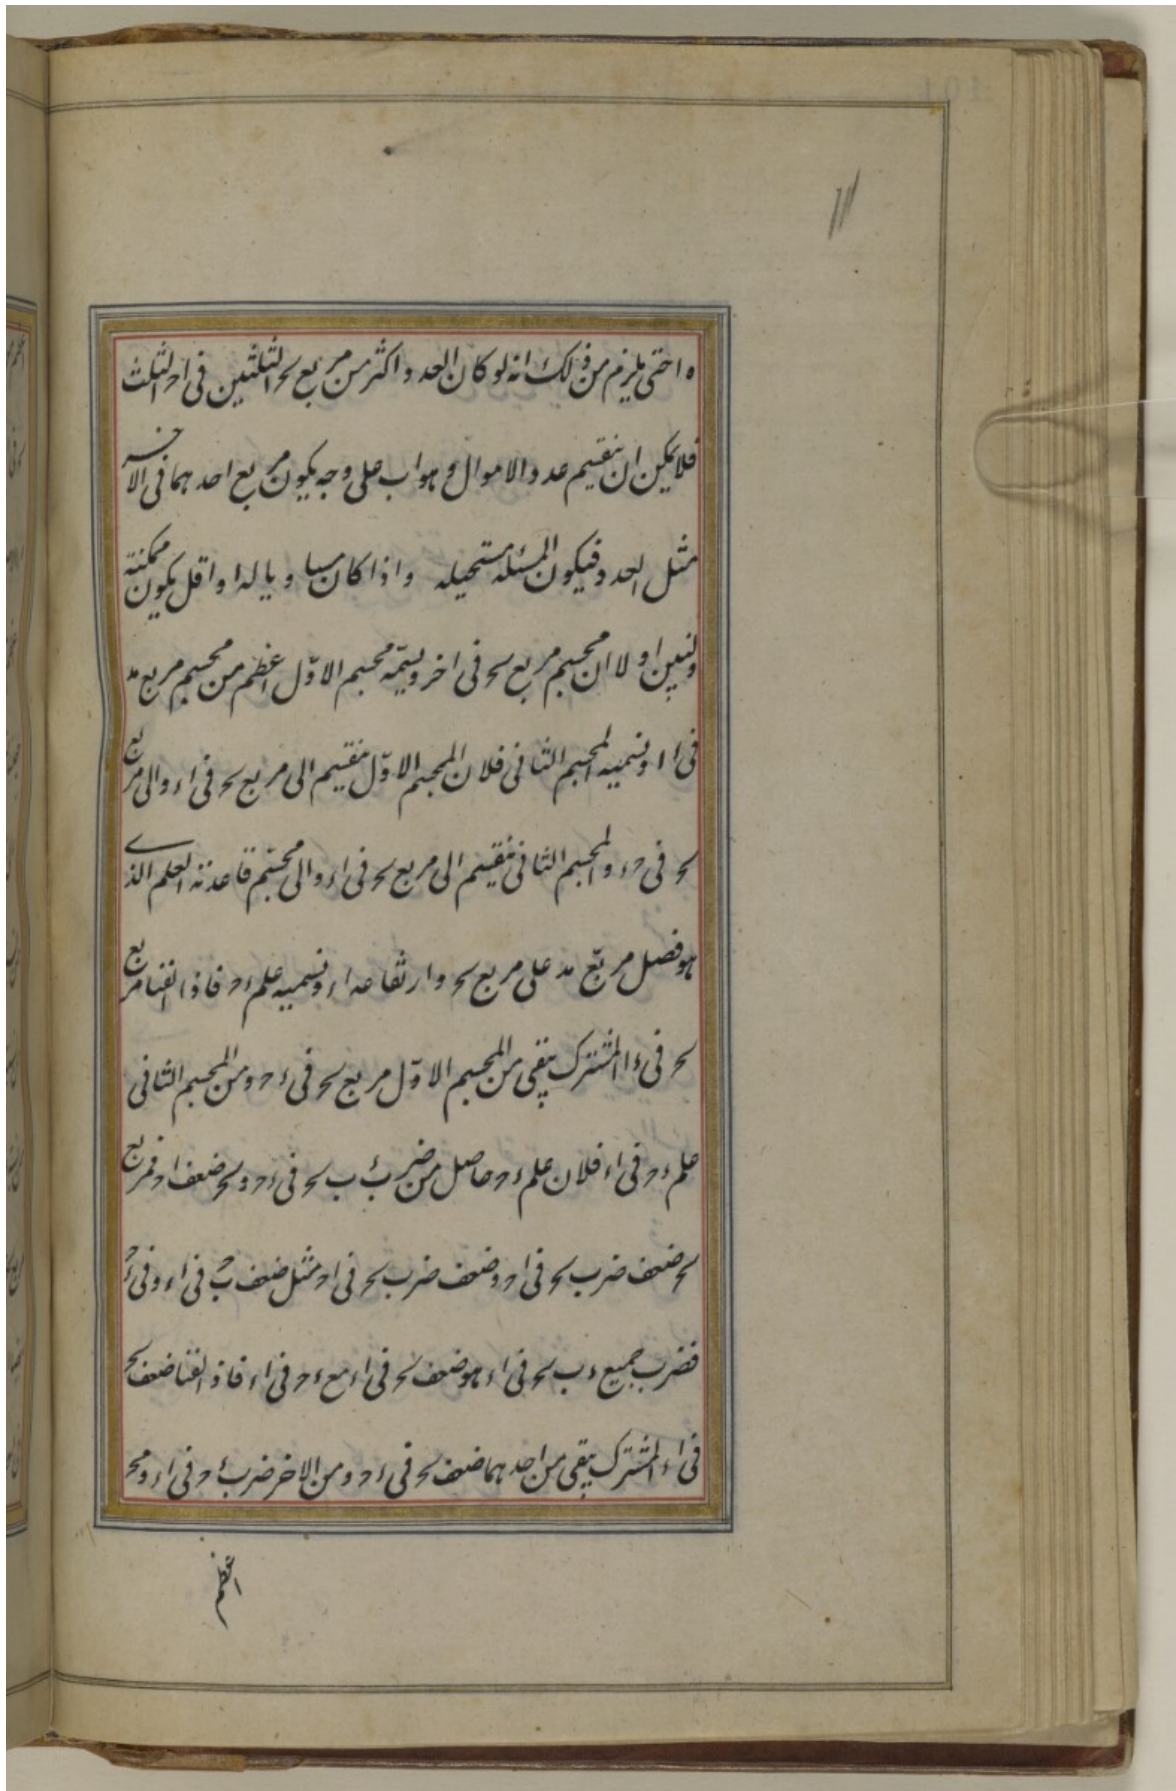 ه احتى يلزم من ذلك انه لو كان العدد اكثر من مربع ىح الثلثين فى اح الثلث
فلا يمكن ان ينقسم عدد الاموال وهو اب على وجه يكون مربع احدهما فى الاخر
مثل العدد فيكون المسئله مستحيله واذا كان مساويا له او اقل يكون ممكنة
ولنبين اولا ان مجسم مربع ىح فى اخر ويسمّه مجسم الاوّل اعظم من مجسم مربع ىد
فى اا ونسميه المجسم الثانى فلان المجسم الاوّل ينقسم الى مربع ىح فى اء والى مربع
ىح فى حء والمجسم الثانى ينقسم الى مربع ىح فى اء والى مجسّم قاعدته العلم الذى
هو فصل مربّع ىد على مربع ىح وارتفاعه اء ونسميه علم ءح فاذا القينا مربع
ىح فى ءا المشترك يبقى من المجسم الاوّل مربع ىح فى ءح ومن المجسم الثانى
علم ءح فى اء فلان علم ءح حاصل من ضرب ءب ىح فى ءح وىح ضعف اح فمربع
ىح ضعف ضرب ىح فى اح وضعف ضرب ىح فى اح مثل ضعف ىح فى اء وفى ءح
فضرب جميع ءب ىح فى اء هو ضعف ىح فى اء مع ءح فى اء فاذا القينا ضعف ىح
فى اء المشترك يبقى من احدهما ضعف ىح فى ءح ومن الاخر ضرب ءح فى اء وىح
اعظم